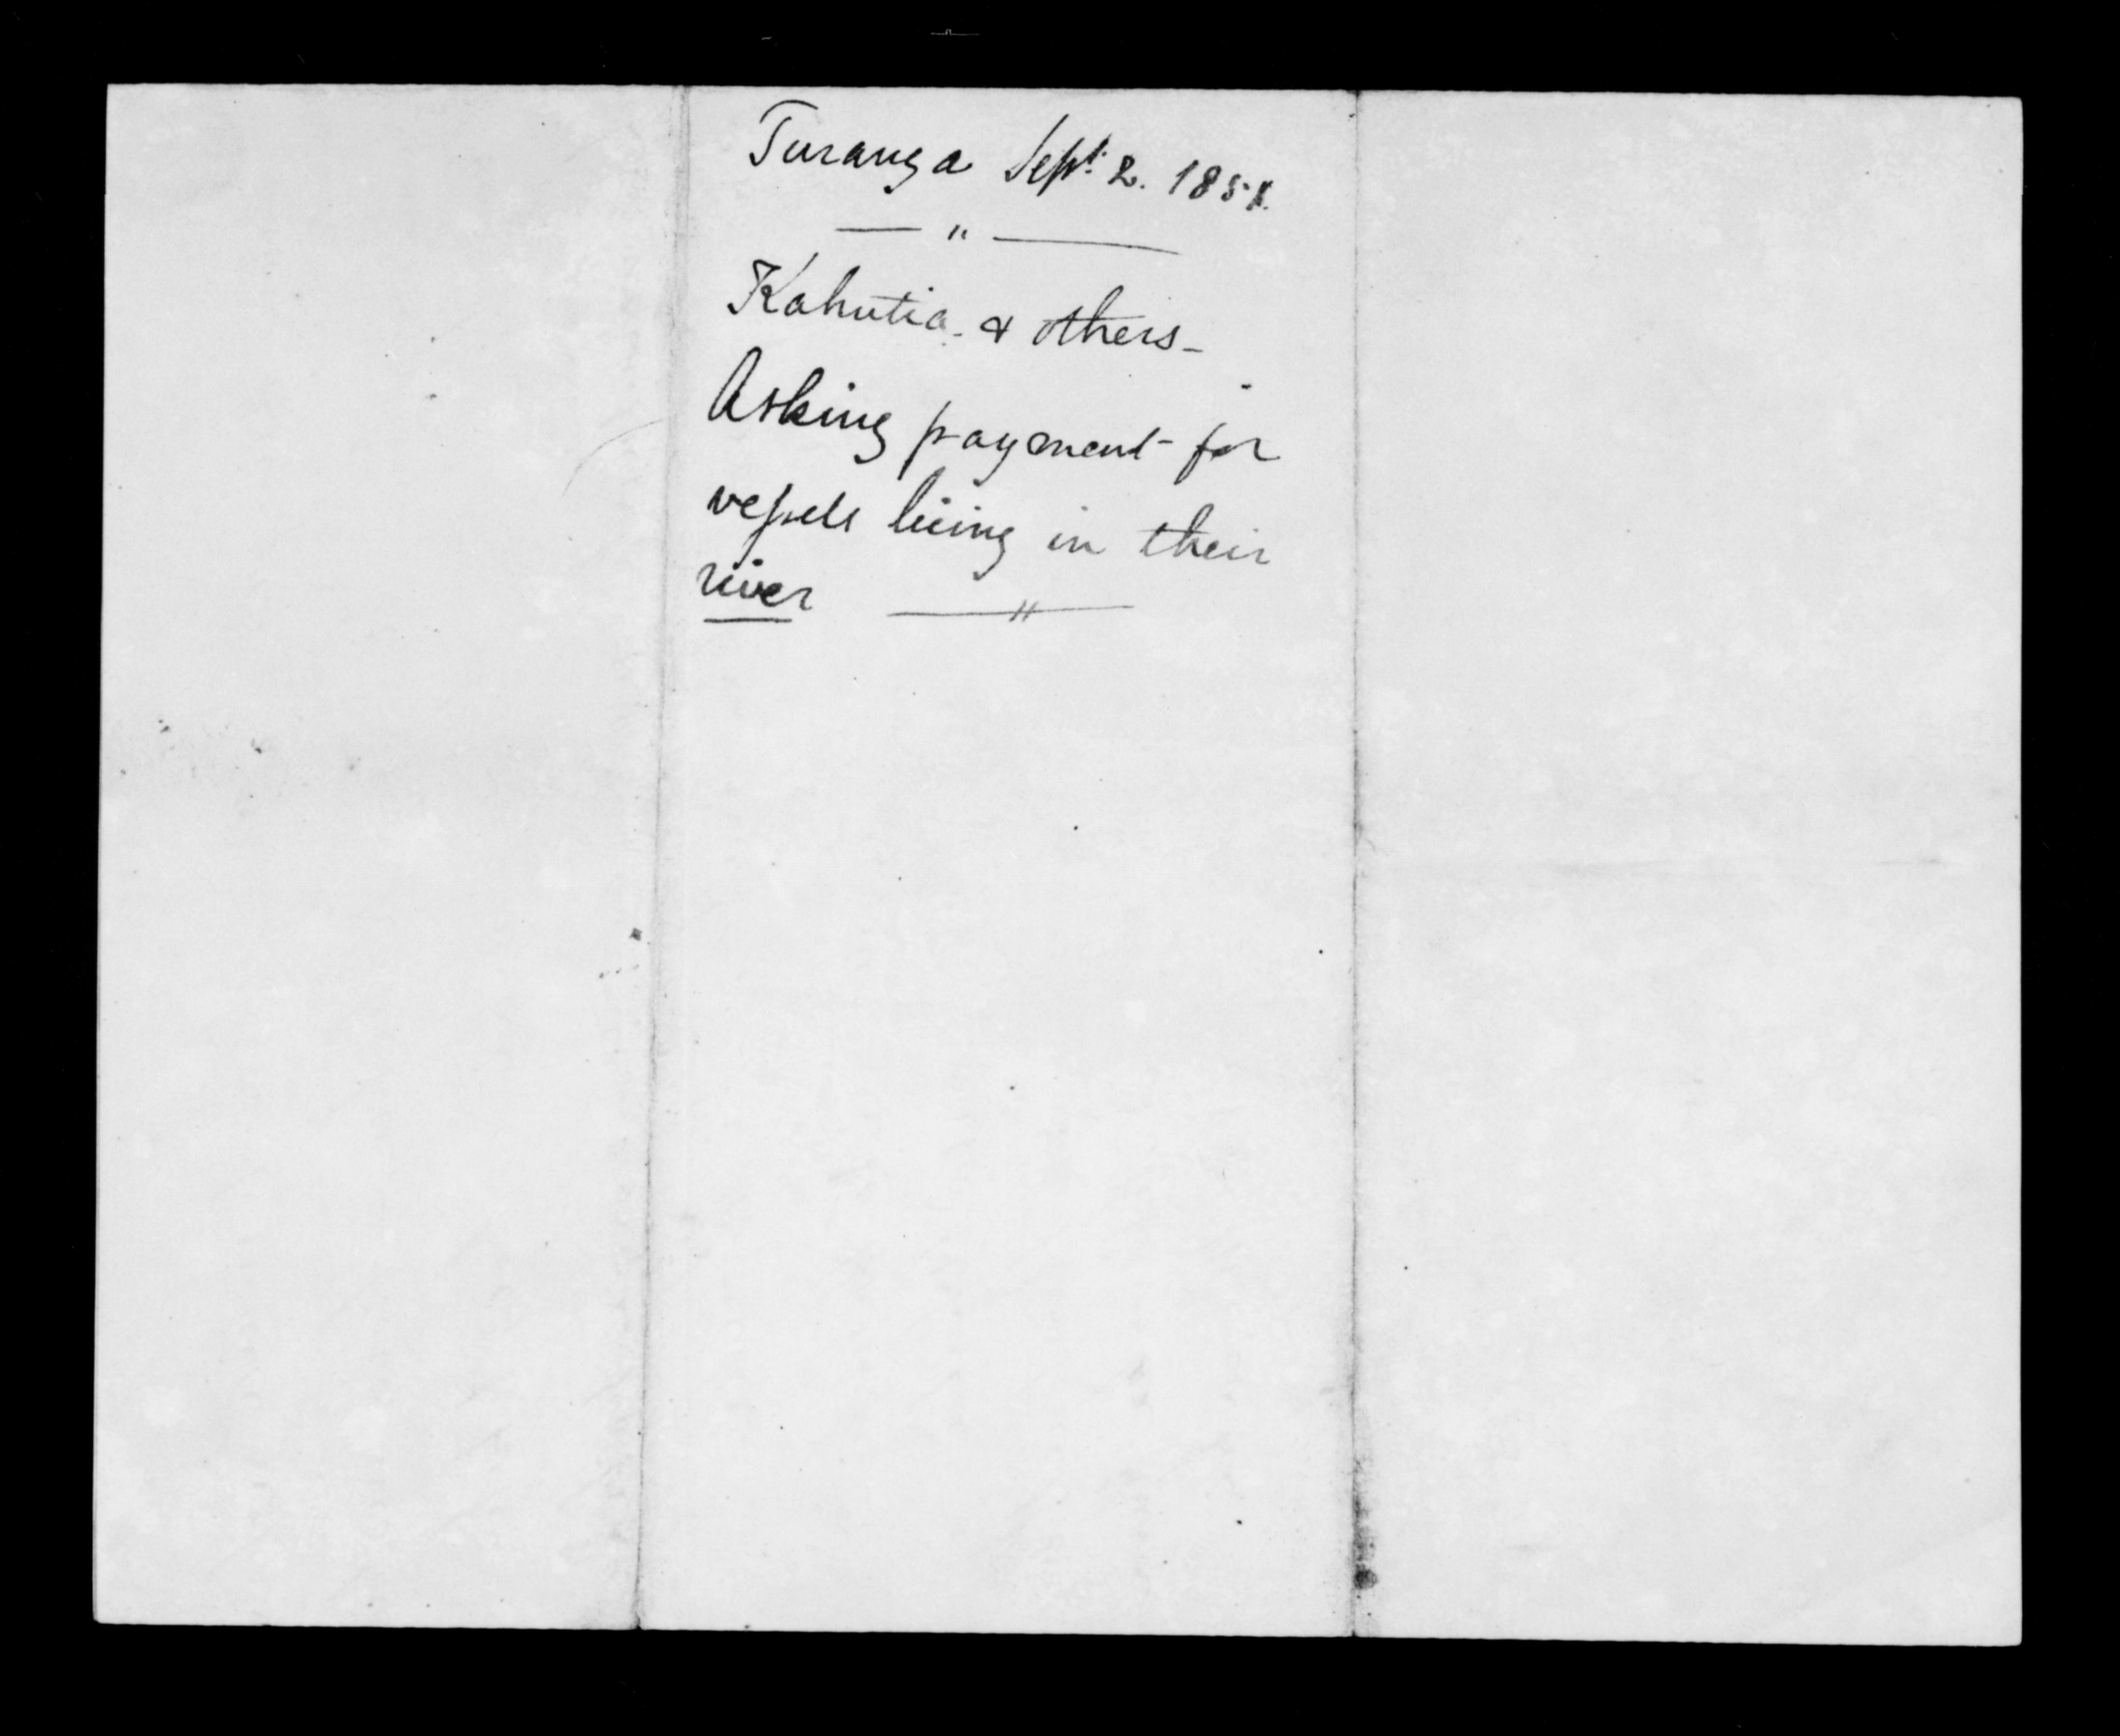 Turanga Sept. 2. 1851.
— " —
Kahutia & others –
Asking payment for
vessels lieing in their
river — " —